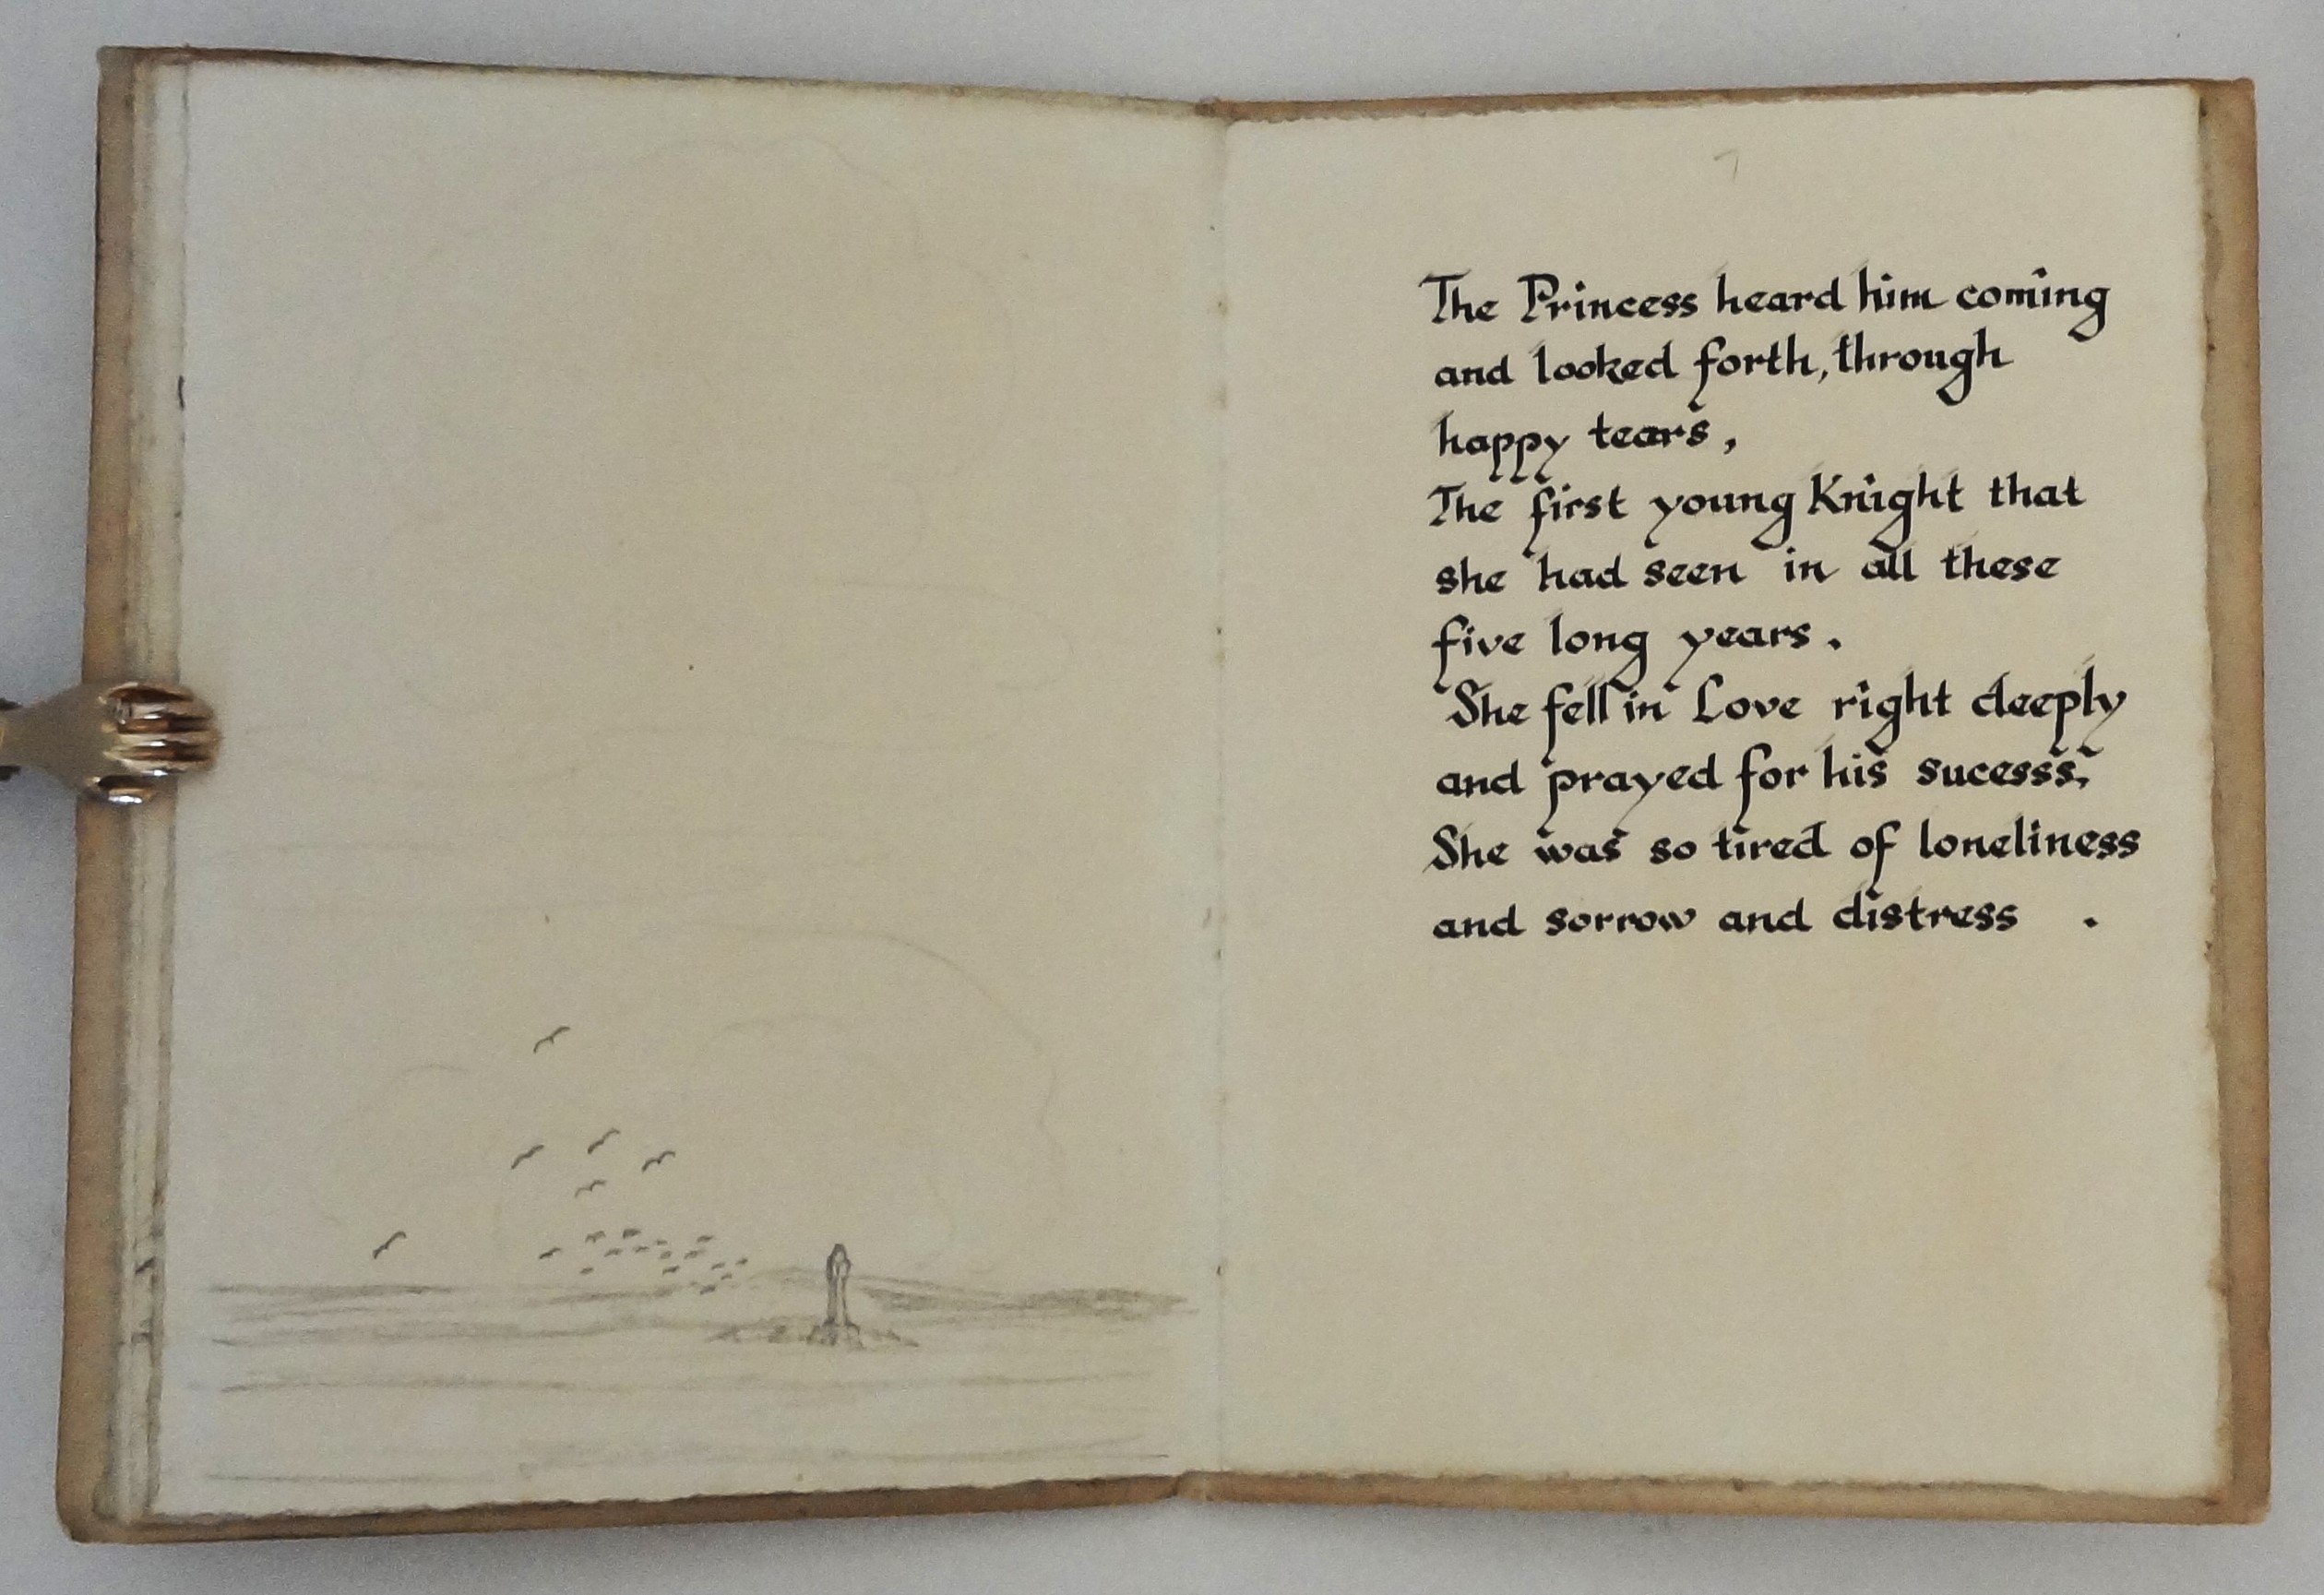 7
The Princess heard him coming
and looked forth, through
happy tears,
The first young Knight that
she had seen in all these
five long years.
She fell in Love right deeply
and prayed for his sucesss,
She was so tired of loneliness
and sorrow and distress .